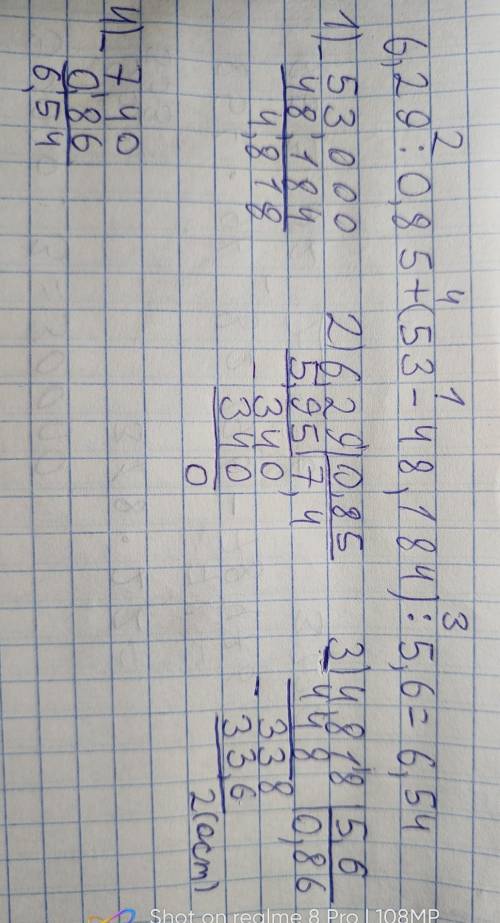 2 4 1 3
6,29:0,85+(53-48,184):5,6=6,54
1)_53000
48,184
4,818
2)6,29|0,85
5,95|7,4
-340
340
0
3)4,818|5,6
448 0,86
-338
33,6
2(ост)
4)_740
0,86
6,54
Shot on realme 8 Pro | 108MP